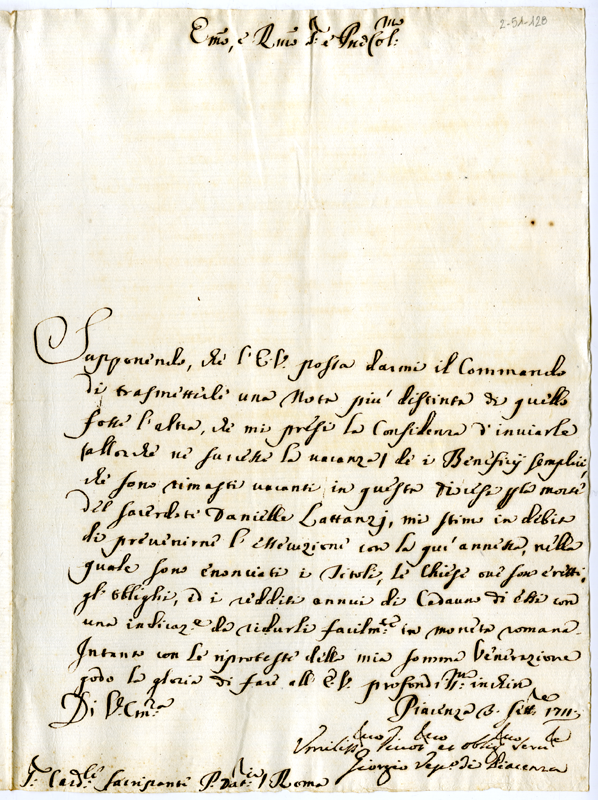 2-51-128
Em̃o, e Rm̃o Sr e Pne Col:mo
Supponendo, che l'E.V. possa darmi il Commando
di trasmetterle una Nota più distinta di quello
fosse l'altra, che mi presi la Confidenza d'inviarle
(allorche ne successe la vacanza) de i Beneficij semplici,
che sono rimasti vacanti in questa Diocese per la morte
del sacerdote Danielle Lattanzj, mi stimo in debito
di prevenirne l'essecuzione con la qui annessa, nella
quale sono enonciati i Titoli, le Chiese ove son eretti,
gl'obblighi, ed i redditi annui di Cadauno di essi con
una indicaz.e da ridurli facilm.te in moneta romana.
Intanto con le riproteste della mia somma Venerazione
godo la gloria di fare all'E.V. profondiss.mi inchini
Di V.Em.za
Piacenza 3. Sett.bre 1711.
Umiliss. Devot. ed obblig. Serv.
Giorgio Vesc.o di Piacenza
Sr Card.le Sacripante P. Dat.rio / Roma